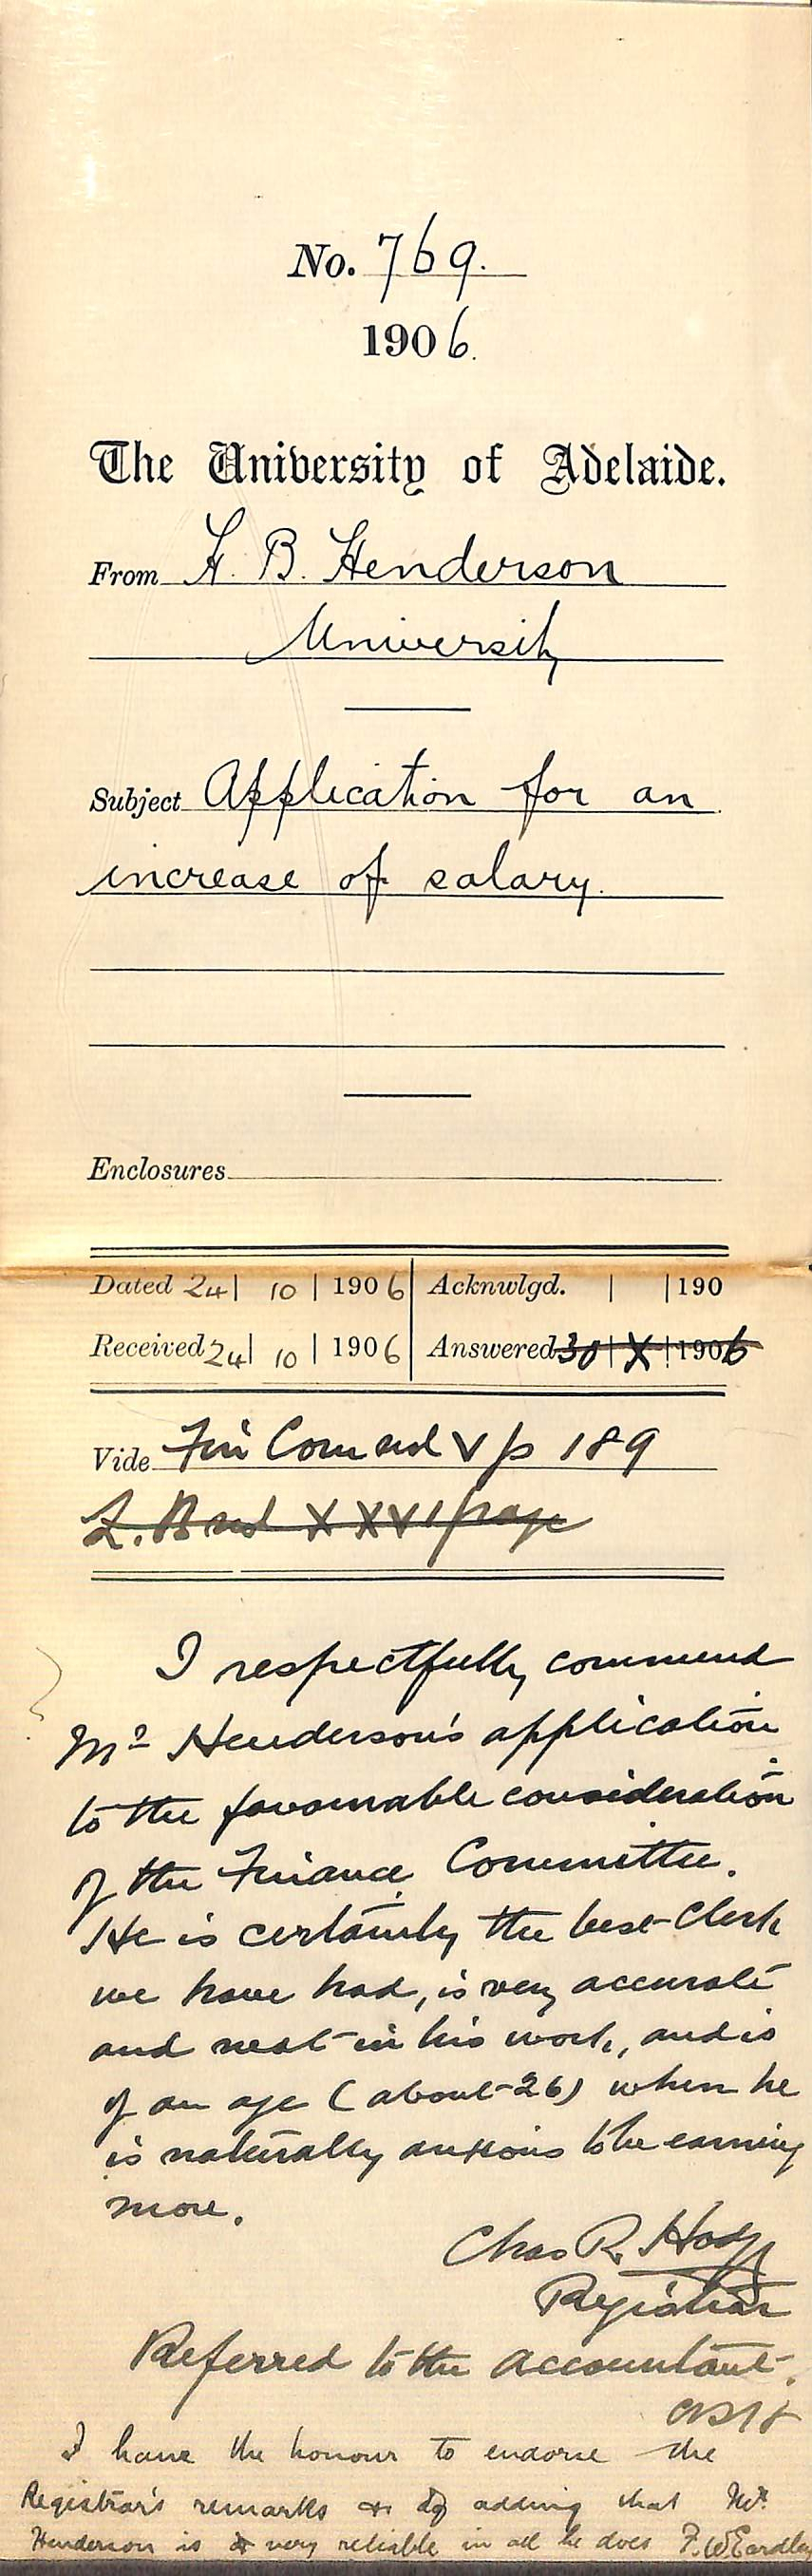 No. 769.
1906.
The University of Adelaide.
From H. B. Henderson
University
Subject Application for an
increase of salary.
Enclosures
Dated 24 | 10 | 1906 Acknwlgd. | | 190
Received 24 | 10 | 1906 Answered 30 | X | 1906
Vide Fin Com vol V p 189
L.B vol XXVI page
I respectfully commend
Mr Henderson's application
to the favourable consideration
of the Finance Committee.
He is certainly the best Clerk
we have had, is very accurate
and neat in his work, and is
of an age (about 26) when he
is naturally anxious to be earning
more.
Chas R. Hodge
Registrar
Referred to the Accountant.
CRH
I have the honour to endorse the
Registrar's remarks adding that Mr.
Henderson is very reliable in all he does F. W Eardley